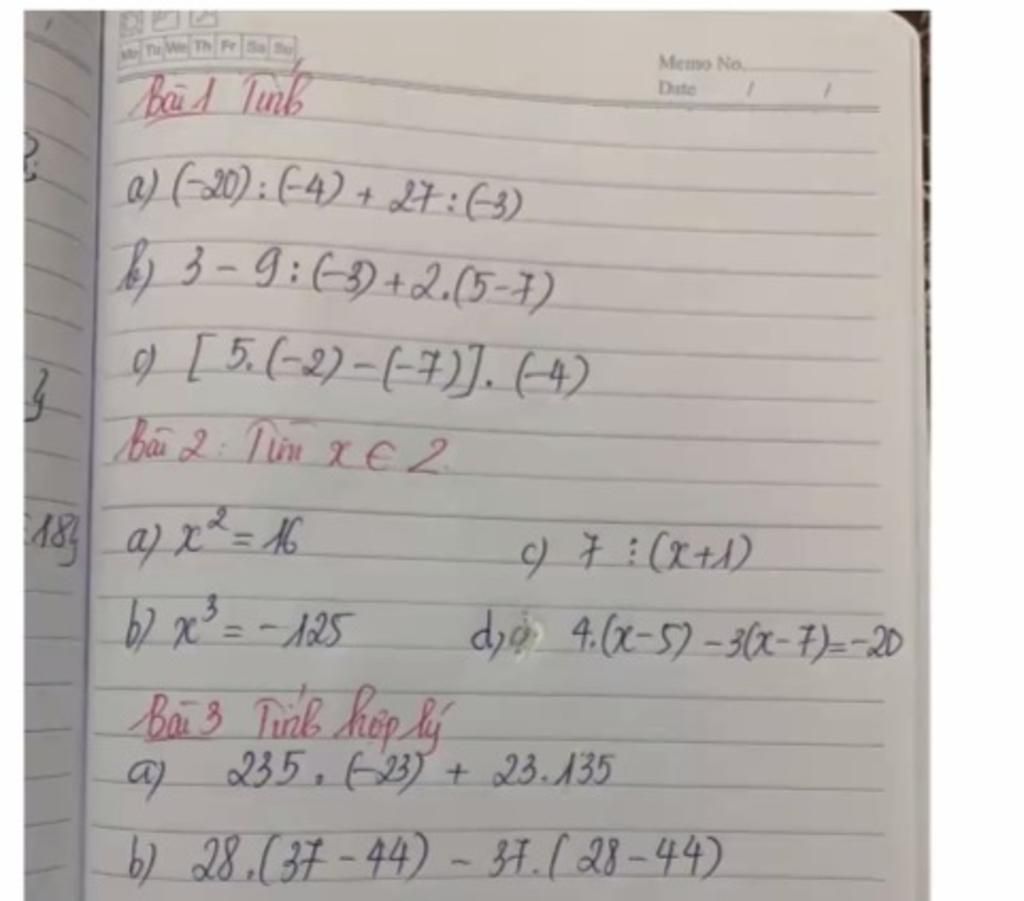 Mo Tu We Th Fr Sa Su
Memo No.
Date / /
Bài 1 Tính
a) (-20) : (-4) + 27 : (-3)
b) 3 - 9 : (-3) + 2.(5-7)
c) [5.(-2) - (-7)] . (-4)
Bài 2: Tìm x ∈ Z
a) x² = 16
c) 7 ⋮ (x+1)
b) x³ = -125
d, 4.(x-5) - 3(x-7) = -20
Bài 3 Tính hợp lý
a) 235 . (-23) + 23.135
b) 28.(37 - 44) - 37.(28 - 44)
}
18}